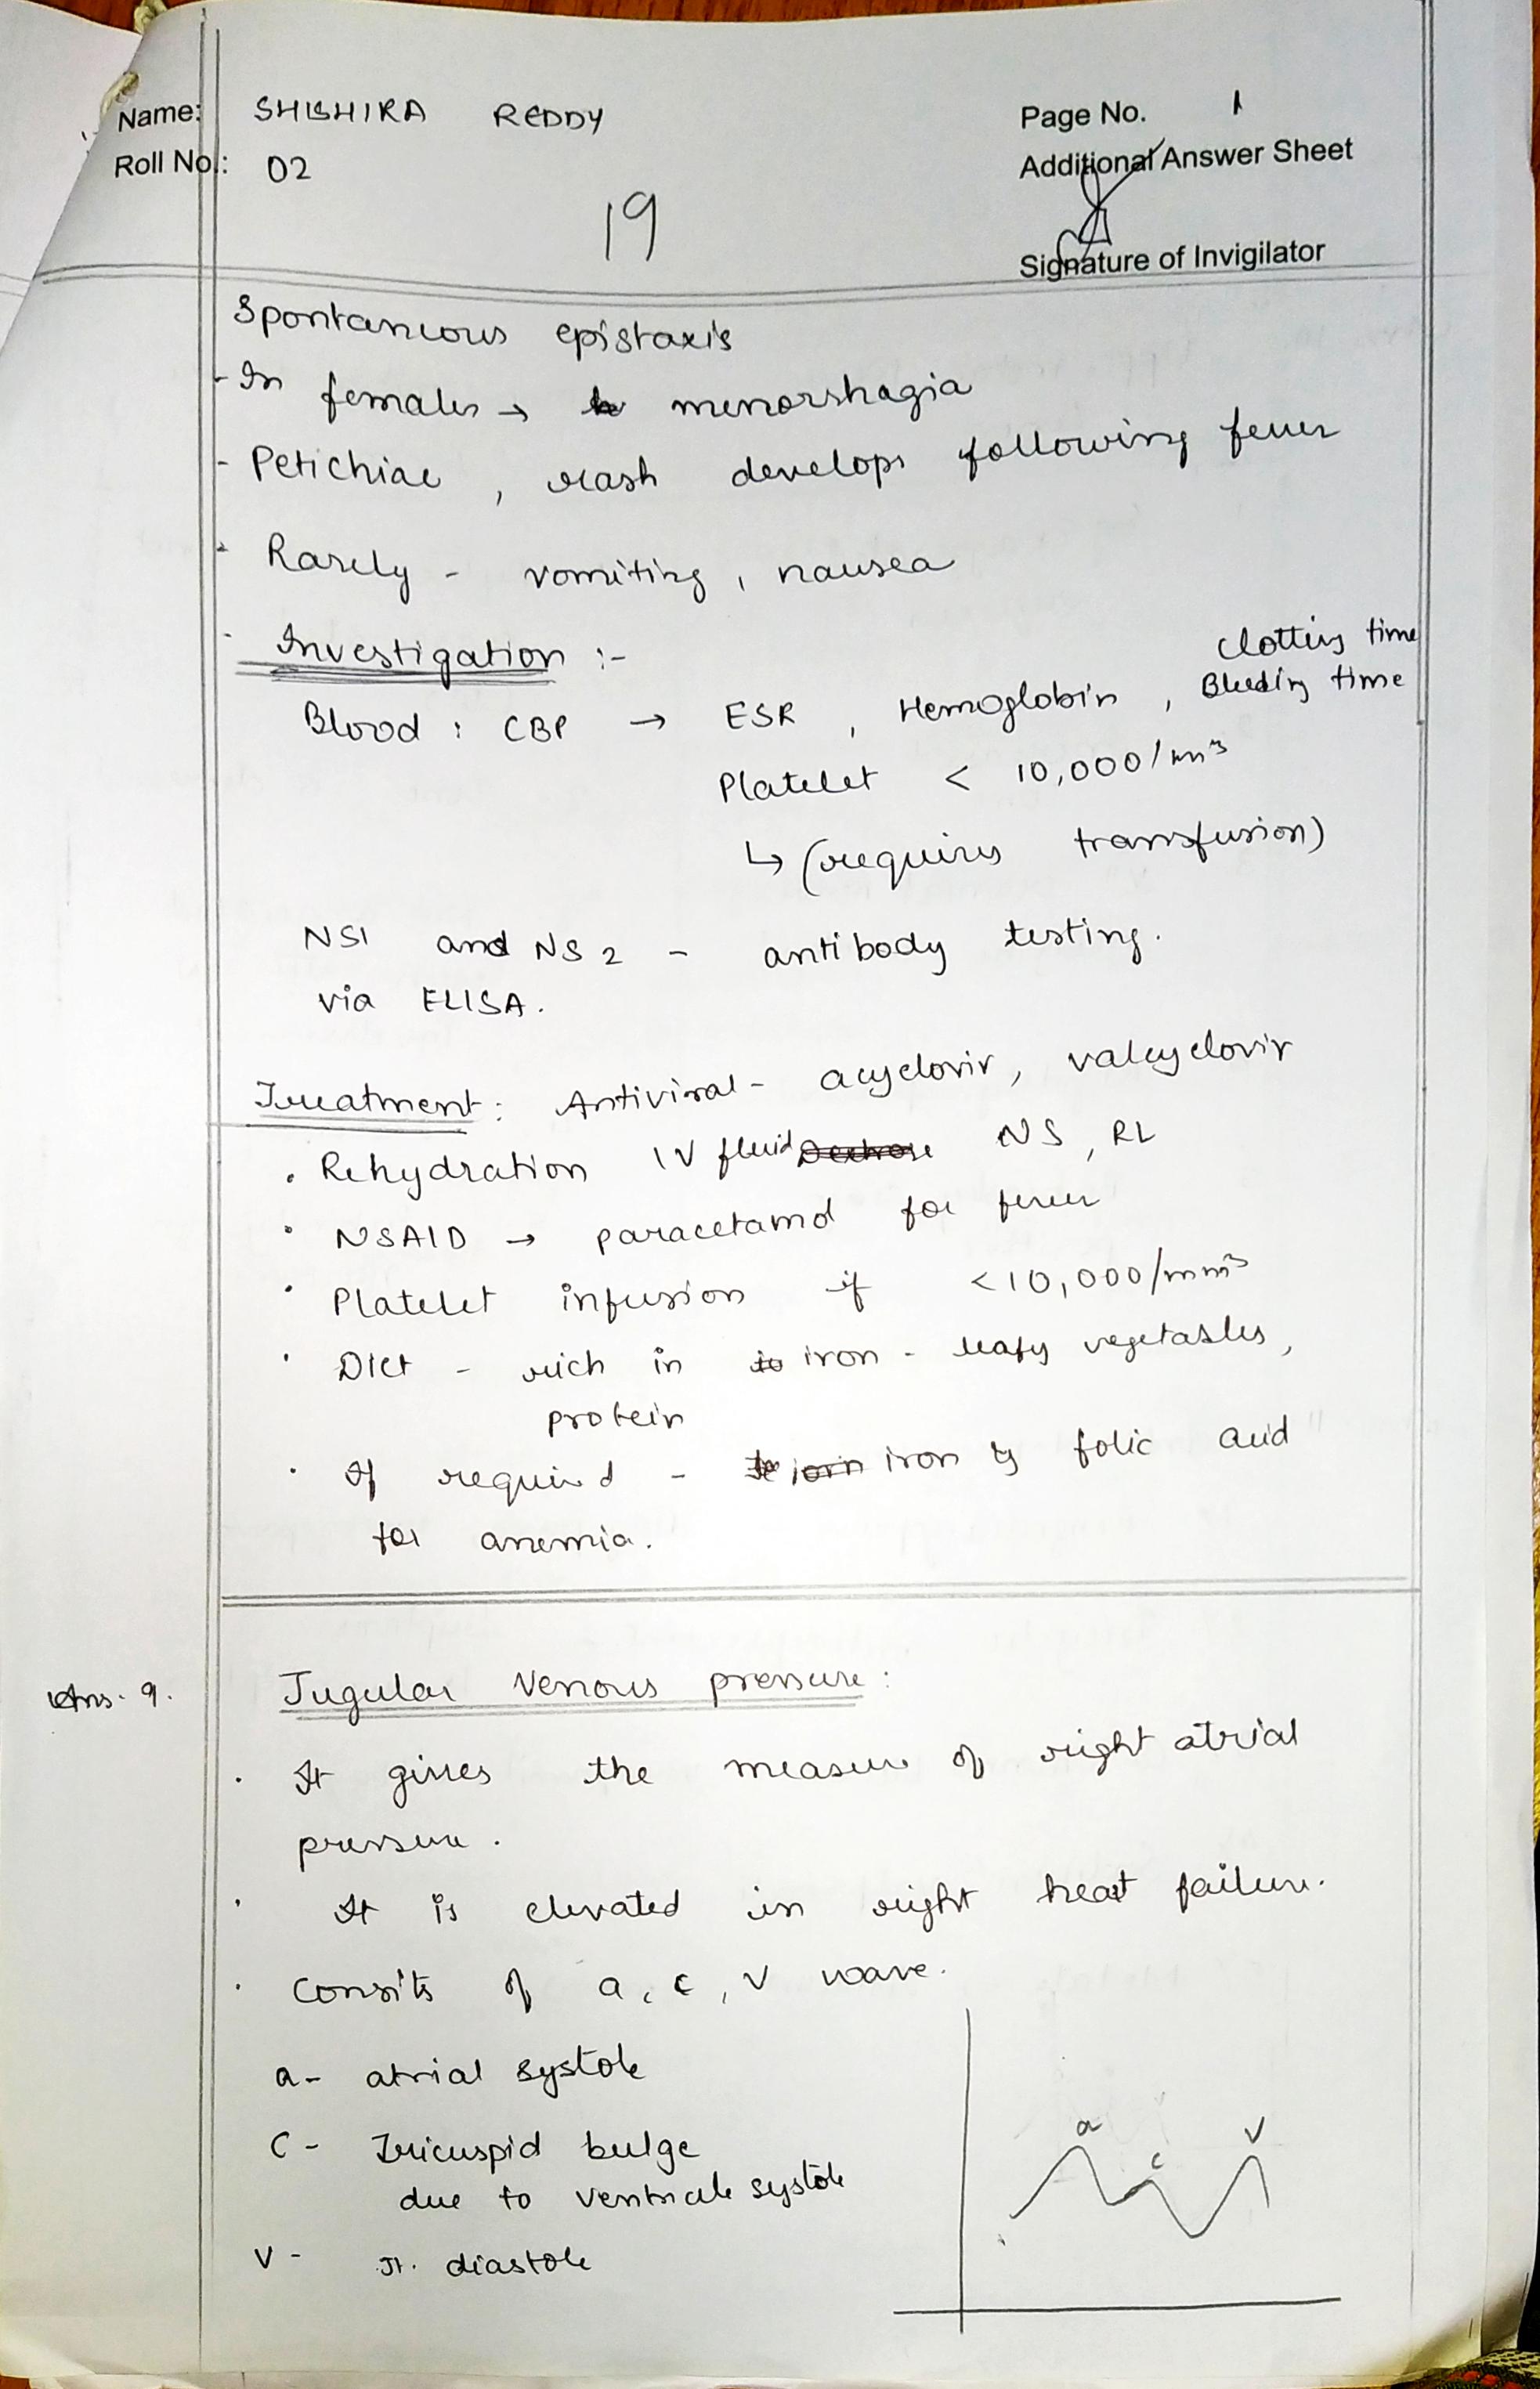 Name: SHISHIRA REDDY
Page No. 1
Roll No.: 02
Additional Answer Sheet
19
Signature of Invigilator
Spontaneous epistaxis
- In females → menorrhagia
- Petichiae, rash develops following fever
- Rarely - vomiting, nausea
- Investigation :-
clotting time
Blood : CBP → ESR, Hemoglobin, Bleeding time
Platelet < 10,000/mm³
↳ (requires transfusion)
NS1 and NS2 - antibody testing.
via ELISA.
Treatment: Antiviral - acyclovir, valcyclovir
• Rehydration IV fluid Dextrose NS, RL
• NSAID → paracetamol for fever
• Platelet infusion if <10,000/mm³
• Diet - rich in iron - leafy vegetables,
protein
• If required - iron & folic acid
for anemia.
Ans. 9. Jugular Venous pressure:
• It gives the measure of right atrial
pressure.
• It is elevated in right heat failure.
• Consits of a, c, v wave.
a - atrial systole
C - Tricuspid bulge
due to ventricle systole
V - diastole
a c v